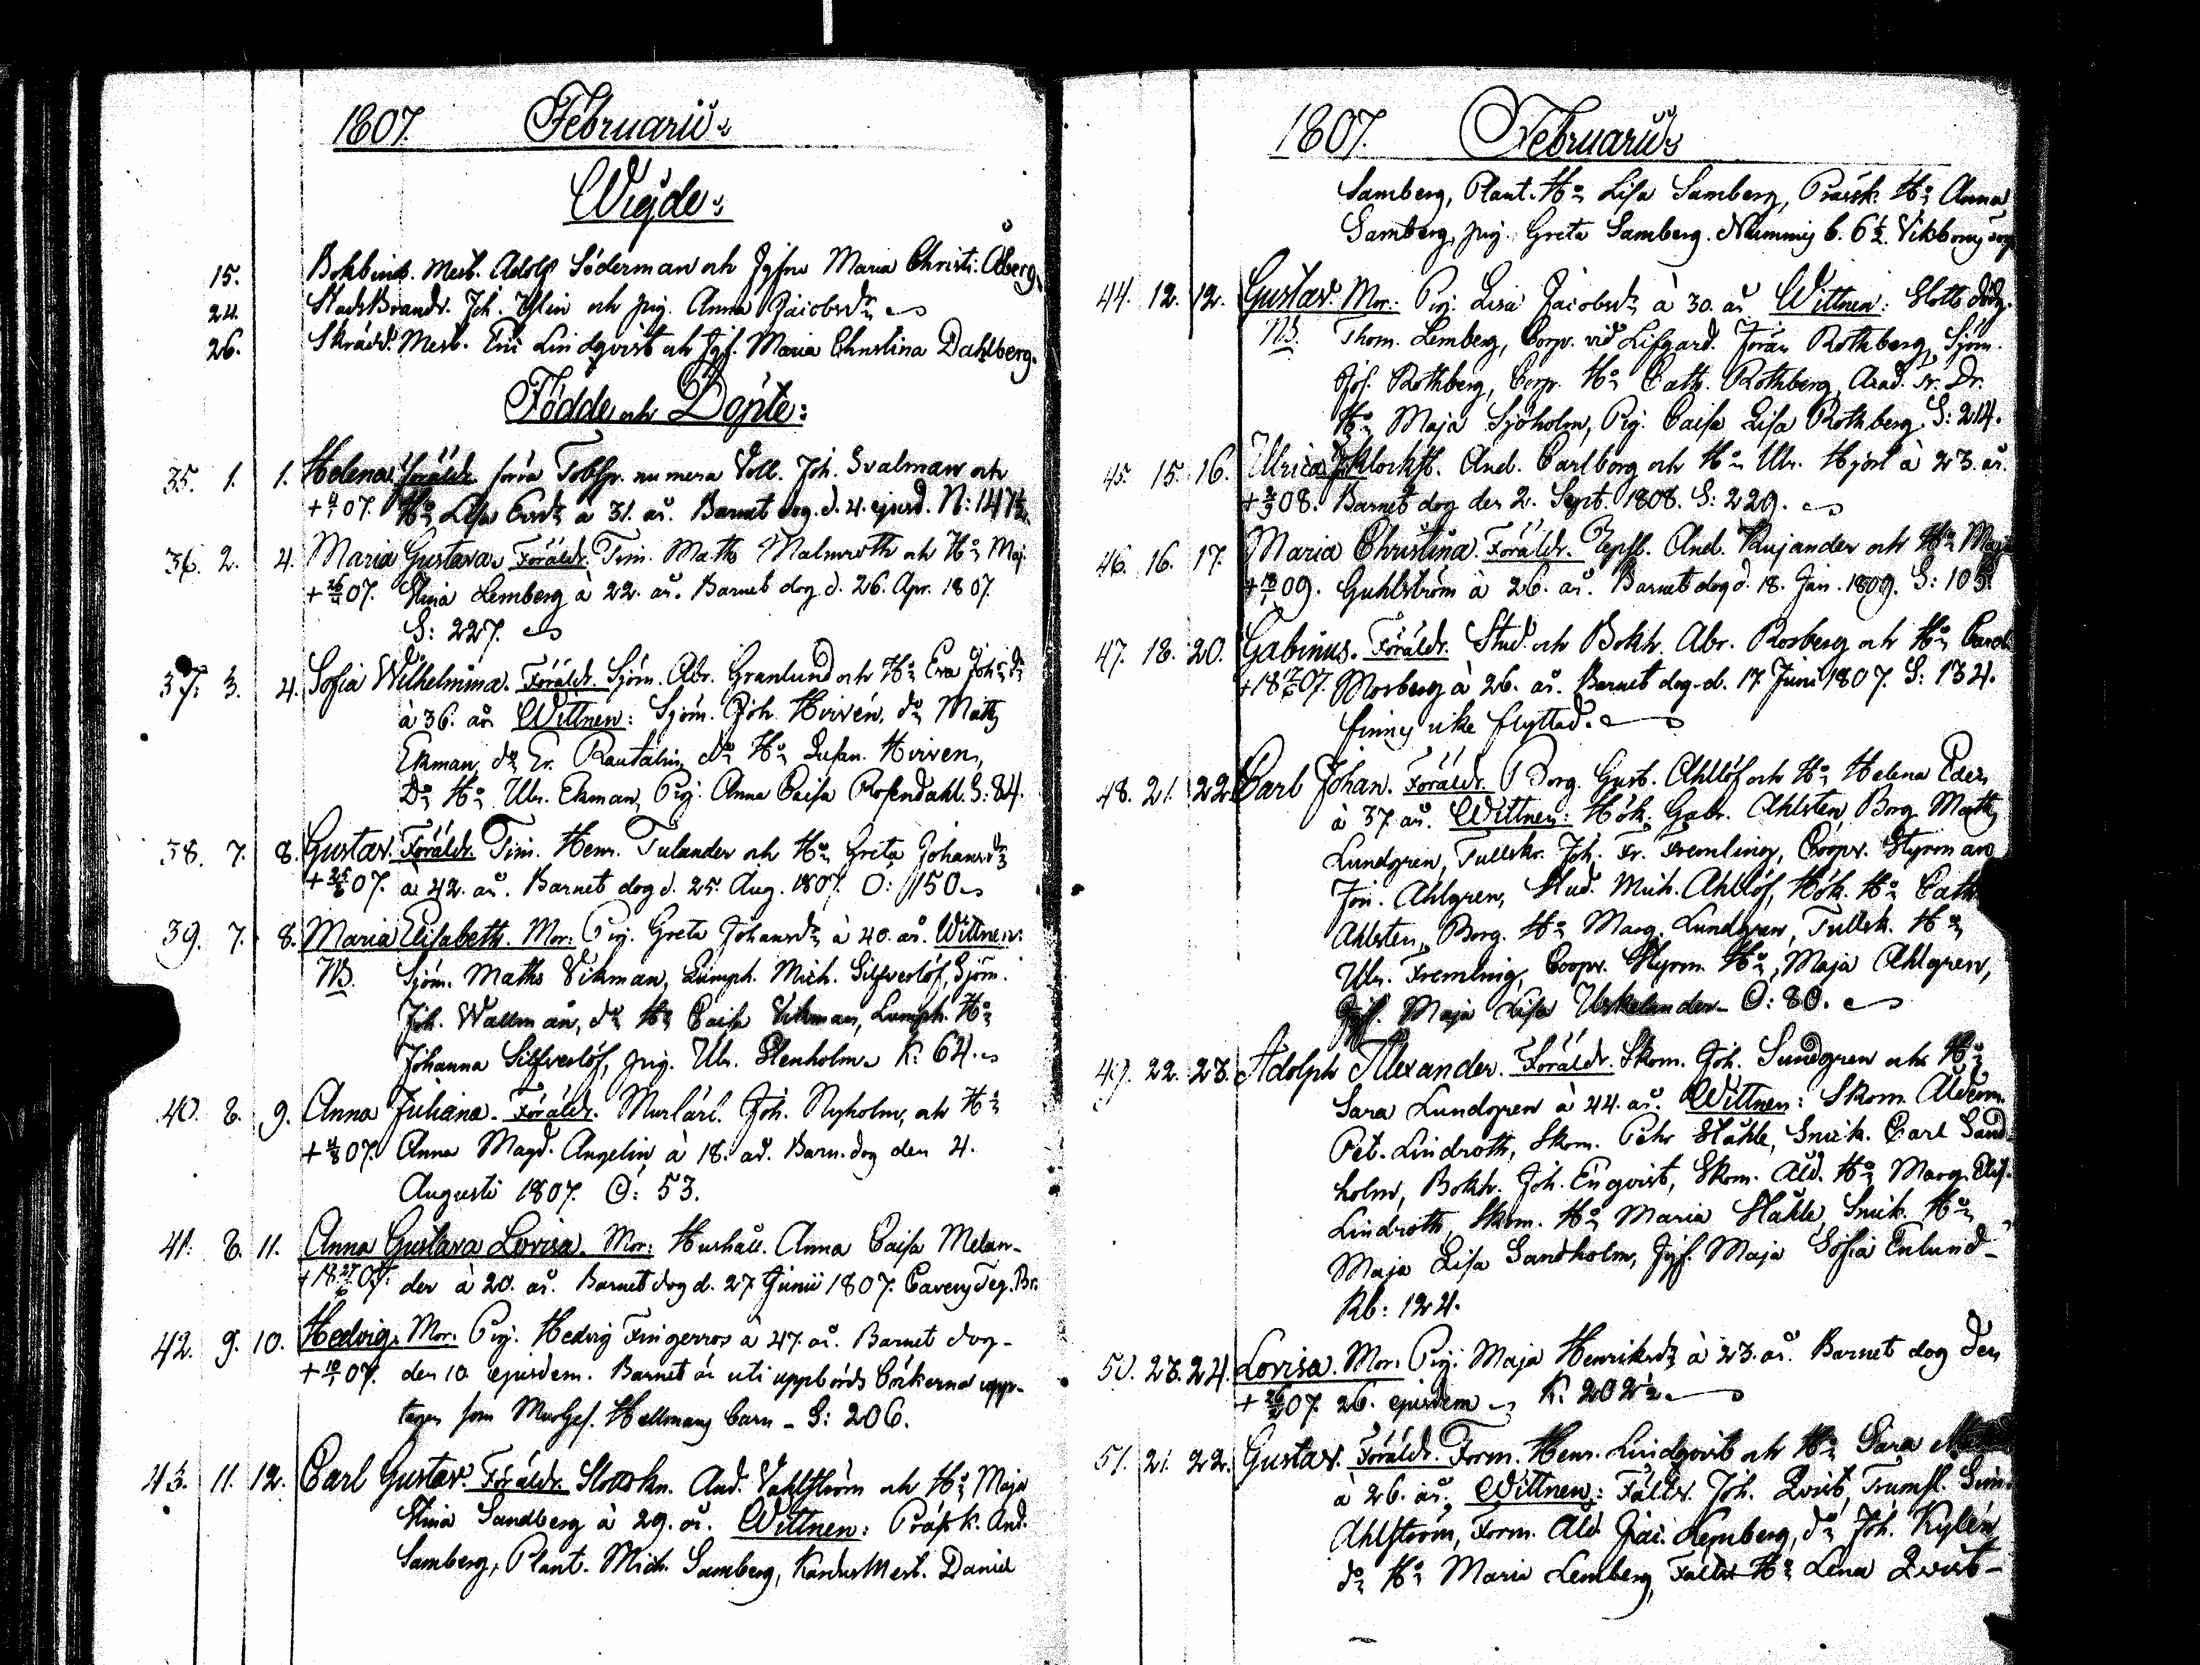 1807. Februarius
Wigde:
15. Bokbind. Mest. Adolf Söderman och Jgfru Maria Christi: Åberg,
24. StadsBrandv. Joh. Ylén och pig. Anna Jacobsdr
26. Skrädd. Mest. Eric Lindqvist och Jgf. Maria Christina Dahlberg.
Födde och Döpte:
35. 1. 1. Helena. Föräldr. förra Tobsp. numera Joh. Svalman och
+ 4/2 07. Hu Lisa Ersdr à 31. år. Barnet dog. d. 4. ejusd. N: 147 1/2.
36. 2. 4. Maria Gustava. Föräldr. Tim. Maths Malmroth och Hu Maj
+ 26/4 07. Stina Lemberg à 22. år. Barnet dog d. 26. Apr. 1807.
S: 227.
37. 3. 4. Sofia Wilhelmina. Föräldr. Sjöm. Abr. Granlund och Hu Eva Johsdr
à 36. år. Wittnen: Sjöm. Joh. Hirvén, do Matts
Ekman, do Er. Rautalin, do Hu Susan. Hirven,
Do Hu Ulr. Ekman, Pig. Anna Caisa Rosendahl. S: 84.
38. 7. 8. Gustav. Föräldr. Tim. Henr. Tulander och Hu Greta Johansdr
+ 25/8 07. à 42. år. Barnet dog d. 25. Aug. 1807. O: 150
39. 7. 8. Maria Elisabeth. Mor: Pig. Greta Johansdr à 40. år. Wittnen:
NB. Sjöm. Maths Vikman, Lumph. Mich. Silfverlöf, Sjöm.
Joh. Wallman, do Hu Caisa Vikman, Lumph. Hu
Johanna Silfverlöf, pig. Ulr. Stenholm. K: 64.
40. 8. 9. Anna Juliana. Föräldr. Murlärl. Joh. Nyholm, och Hu
+ 4/8 07. Anna Magd. Angelin à 18. år. Barn. dog den 4.
Augusti 1807. O: 53.
41. 8. 11. Anna Gustava Lovisa. Mor: Hushåll. Anna Caisa Melan-
+ 18 27/6 07. der à 20. år. Barnet dog d. 27. Junii 1807. Teg. Br.
42. 9. 10. Hedvig. Mor: Pig. Hedvig Fingerroos à 47. år. Barnet dog
+ 10/2 07. den 10. ejusdem. Barnet är uti uppbörds Böckerna upp-
tagen som MurGes. Hellmans barn - S: 206.
43. 11. 12. Carl Gustav. Föräldr. Slottskn. And. Vahlström och Hu Maja
Stina Sandberg à 29. år. Wittnen: And.
Samberg, Plant. Mich. Samberg, Mest. Daniel
1807. Februarius
Samberg, Plant. Hu Lisa Samberg, Hu Anna
Samberg, pig. Greta Samberg. b. 6 1/2.
44. 12. 12. Gustav. Mor: Pig. Lisa Jacobsdr à 30. år. Wittnen: Slotts
NB. Thom. Lemberg, Corp. vid Lifgard. Jöran Rothberg, Sjöm.
Jos. Rothberg, Corp. Hu Cath. Rothberg, Acad. Tr. Dr.
Hu Maja Sjöholm, Pig. Caisa Lisa Rothberg. S: 214.
45. 15. 16. Ulrica. And. Carlborg och Hu Ulr. Hjort à 23. år.
+ 2/9 08. Barnet dog den 2. Sept. 1808. S: 229.
46. 16. 17. Maria Christina. Föräldr. And. Kujander och Hu Maja
+ 18/1 09. Guhlström à 26. år. Barnet dog d. 18. Jan. 1809. S: 103.
47. 18. 20. Gabinus. Föräldr. Stud. och Bokh. Abr. Rosberg och Hu Carol.
+ 18 17/6 07. Morberg à 26. år. Barnet dog d. 17. Juni 1807. S: 134.
finnes icke flyttad.
48. 21. 22. Carl Johan. Föräldr. Borg. Gust. Ahllöf och Hu Helena Eden
à 37. år. Wittnen: Hök. Gabr. Ahlsten, Borg. Matts
Lundgren, Tullskr. Joh. Fr. Fremling, Coopv. Styrman
Ahlgren, Stud. Mich. Ahllöf, Hök. Hu Cath.
Ahlsten, Borg. Hu Marg. Lundgren, Tullsk. Hu
Ulr. Fremling, Coopv. Styrm. Hu Maja Ahlgren,
Jgf. Maja Lisa Uskelander - O: 80.
49. 22. 23. Adolph Alexander. Föräldr. Skom. Joh. Sundgren och Hu
Sara Lundgren à 44. år. Wittnen: Skom.Ålderm.
Pet. Lindroth, Skom. Pehr Ståhle, Snick. Carl Sand-
holm, Bokh. Joh. Enqvist, Skom. Åld. Hu Marg. Elis.
Lindroth, Skom. Hu Maria Ståhle, Snick. Hu
Maja Lisa Sandholm, Jgf. Maja Sofia Enlund -
Kb: 124.
50. 23. 24. Lovisa. Mor: Pig. Maja Henriksdr à 23. år. Barnet dog den
+ 26/2 07. 26. ejusdem K: 202 1/2.
51. 21. 22. Gustav. Föräldr. Form. Henr. Lindqvist och Hu Sara
à 26. år. Wittnen: Fältv. Joh. Qvist, Sim.
Ahlström, Form. Åld. Jac. Lemberg, do Joh. Kylén,
do Hu Maria Lemberg, Fältv. Hu Lena Qvist -